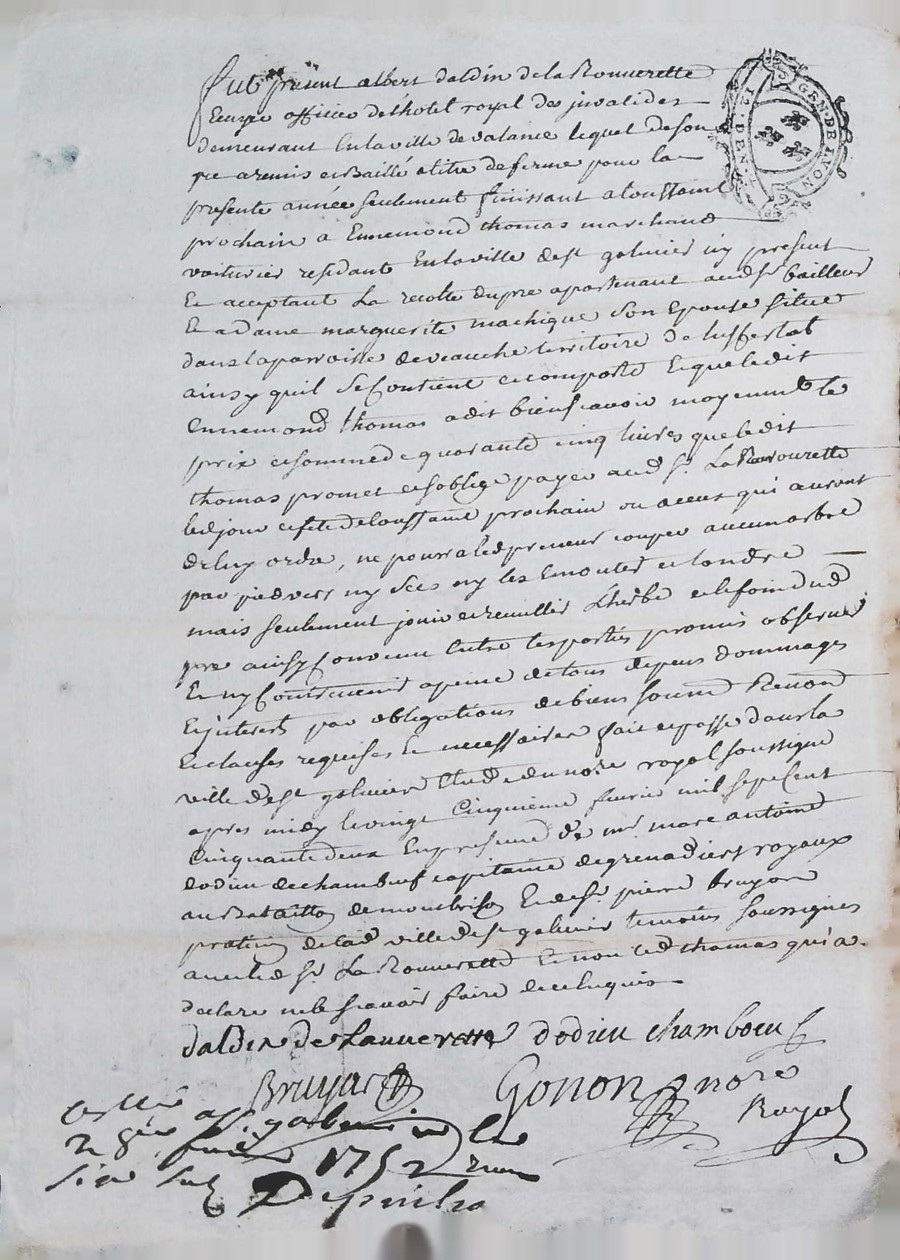 fut présent albert daldin de la Rouuerette
Ecuyer officier de l'hotel royal des jnvalides
demeurant En la ville de valance lequel de son
gre a remis et Baillé a titre de ferme pour la
presente année seulement finissant a toussaint
prochain a Ennemond thomas marchand
voiturier residant En la ville de st galmier icy present
Et acceptant La recolte du pre apartenant aud sr bailleur
Et a dame marguerite machique son Epouse situé
dans la parroisse de veauche territoire de
ainsy quil Se Contient et comporte Lequel edit
Ennemond thomas a dit bien scavoir moyennant le
prix et somme de quarante cinq livres que ledit
thomas promet et soblige payer aud sr La Rouurette
led jour et fete de toussaint prochain ou a ceux qui auront
de luy ordre, ne pourra led preneur couper aucun arbre
par pied vers ny Sec ny les Emouter et tondre
mais seulement jouir et recuillir Lherbe et le foin dud
pre ainsy Convenu Entre les parties promis observer
Et ny Contrevenir a peine de tous depens dommages
Et jnterests par obligations de biens soumd Renond
Et clauses requises Et necessaires fait et passé dans la
ville de st galmier Etude du nore royal soussigné
apres midy le vingt Cinquieme fevrier mil sept Cent
Cinquante deux En presence de mr marc antoine
dodieu de chambeuf capitaine de grenadiers royaux
au Bataillon de montbrison Et de sr pierre bruyas
praticien de lad ville de st galmier temoins soussignes
avec led sr La Rouuerette Et non led thomas qui a
declaré ne le scavoir faire de ce Enquis
daldin de Lauuerette dodieu chamboeuf
Bruyas Gonon nore
Royal
a st galmier le
1752
six sols